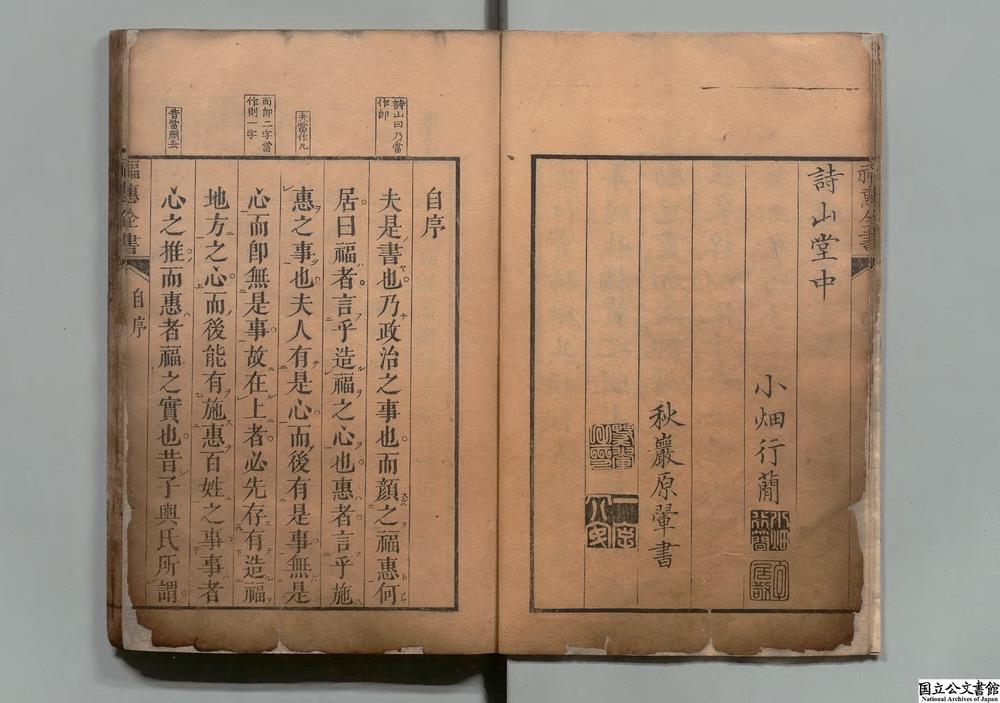 詩山堂中
小畑行蕳
秋巖原翬書
福惠全書
自序
詩山曰乃當
作卽
夫當作凡
而卽二字當
作則一字
昔當刪去
自序
夫是書也乃政治之事也而顏之福惠何
居曰福者言乎造福之心也惠者言乎施
惠之事也夫人有是心而後有是事無是
心而卽無是事故在上者必先存有造福
地方之心而後能有施惠百姓之事事者
心之推而惠者福之實也昔子輿氏所謂
福惠全書
自序
国立公文書館
National Archives of Japan